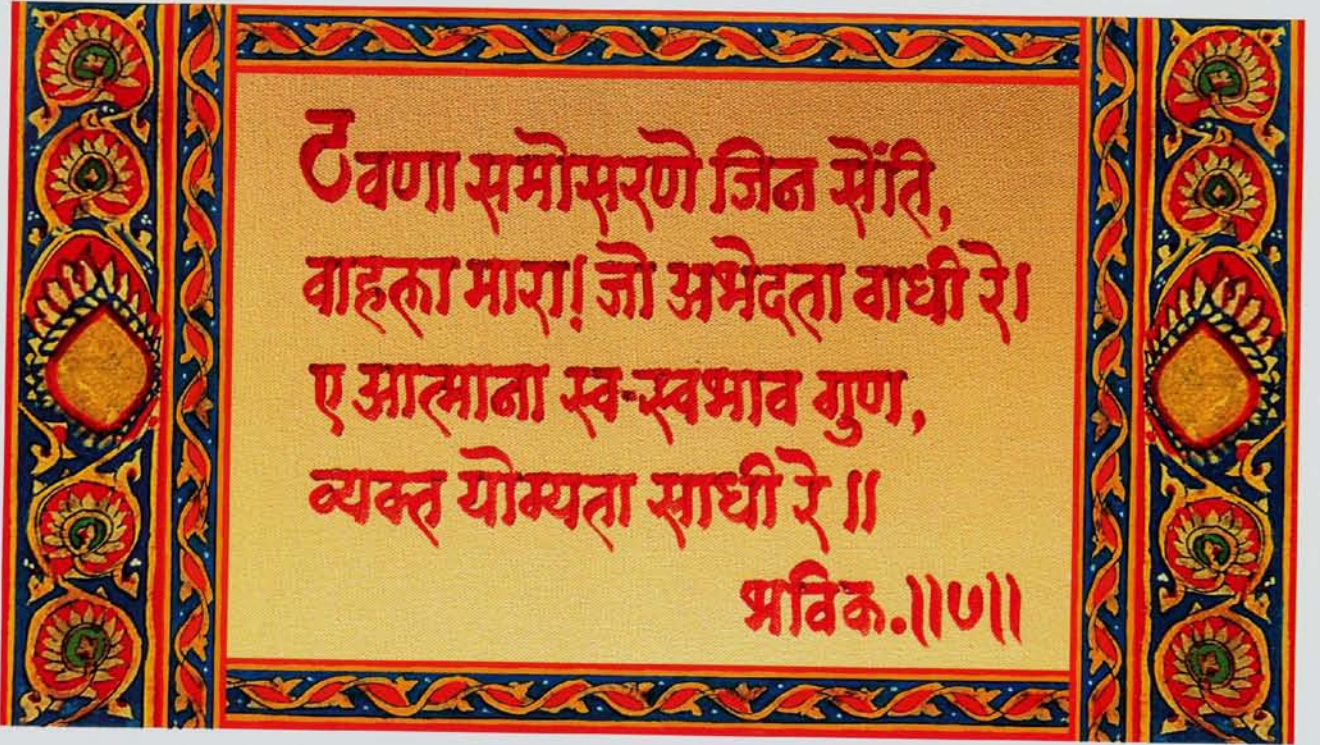 ठवणा समोसरणे जिन सेंति,
वाहला मारा! जो अभेदता वाधी रे।
ए आत्माना स्व-स्वभाव गुण,
व्यक्त योग्यता साधी रे ॥
भविक.॥७॥